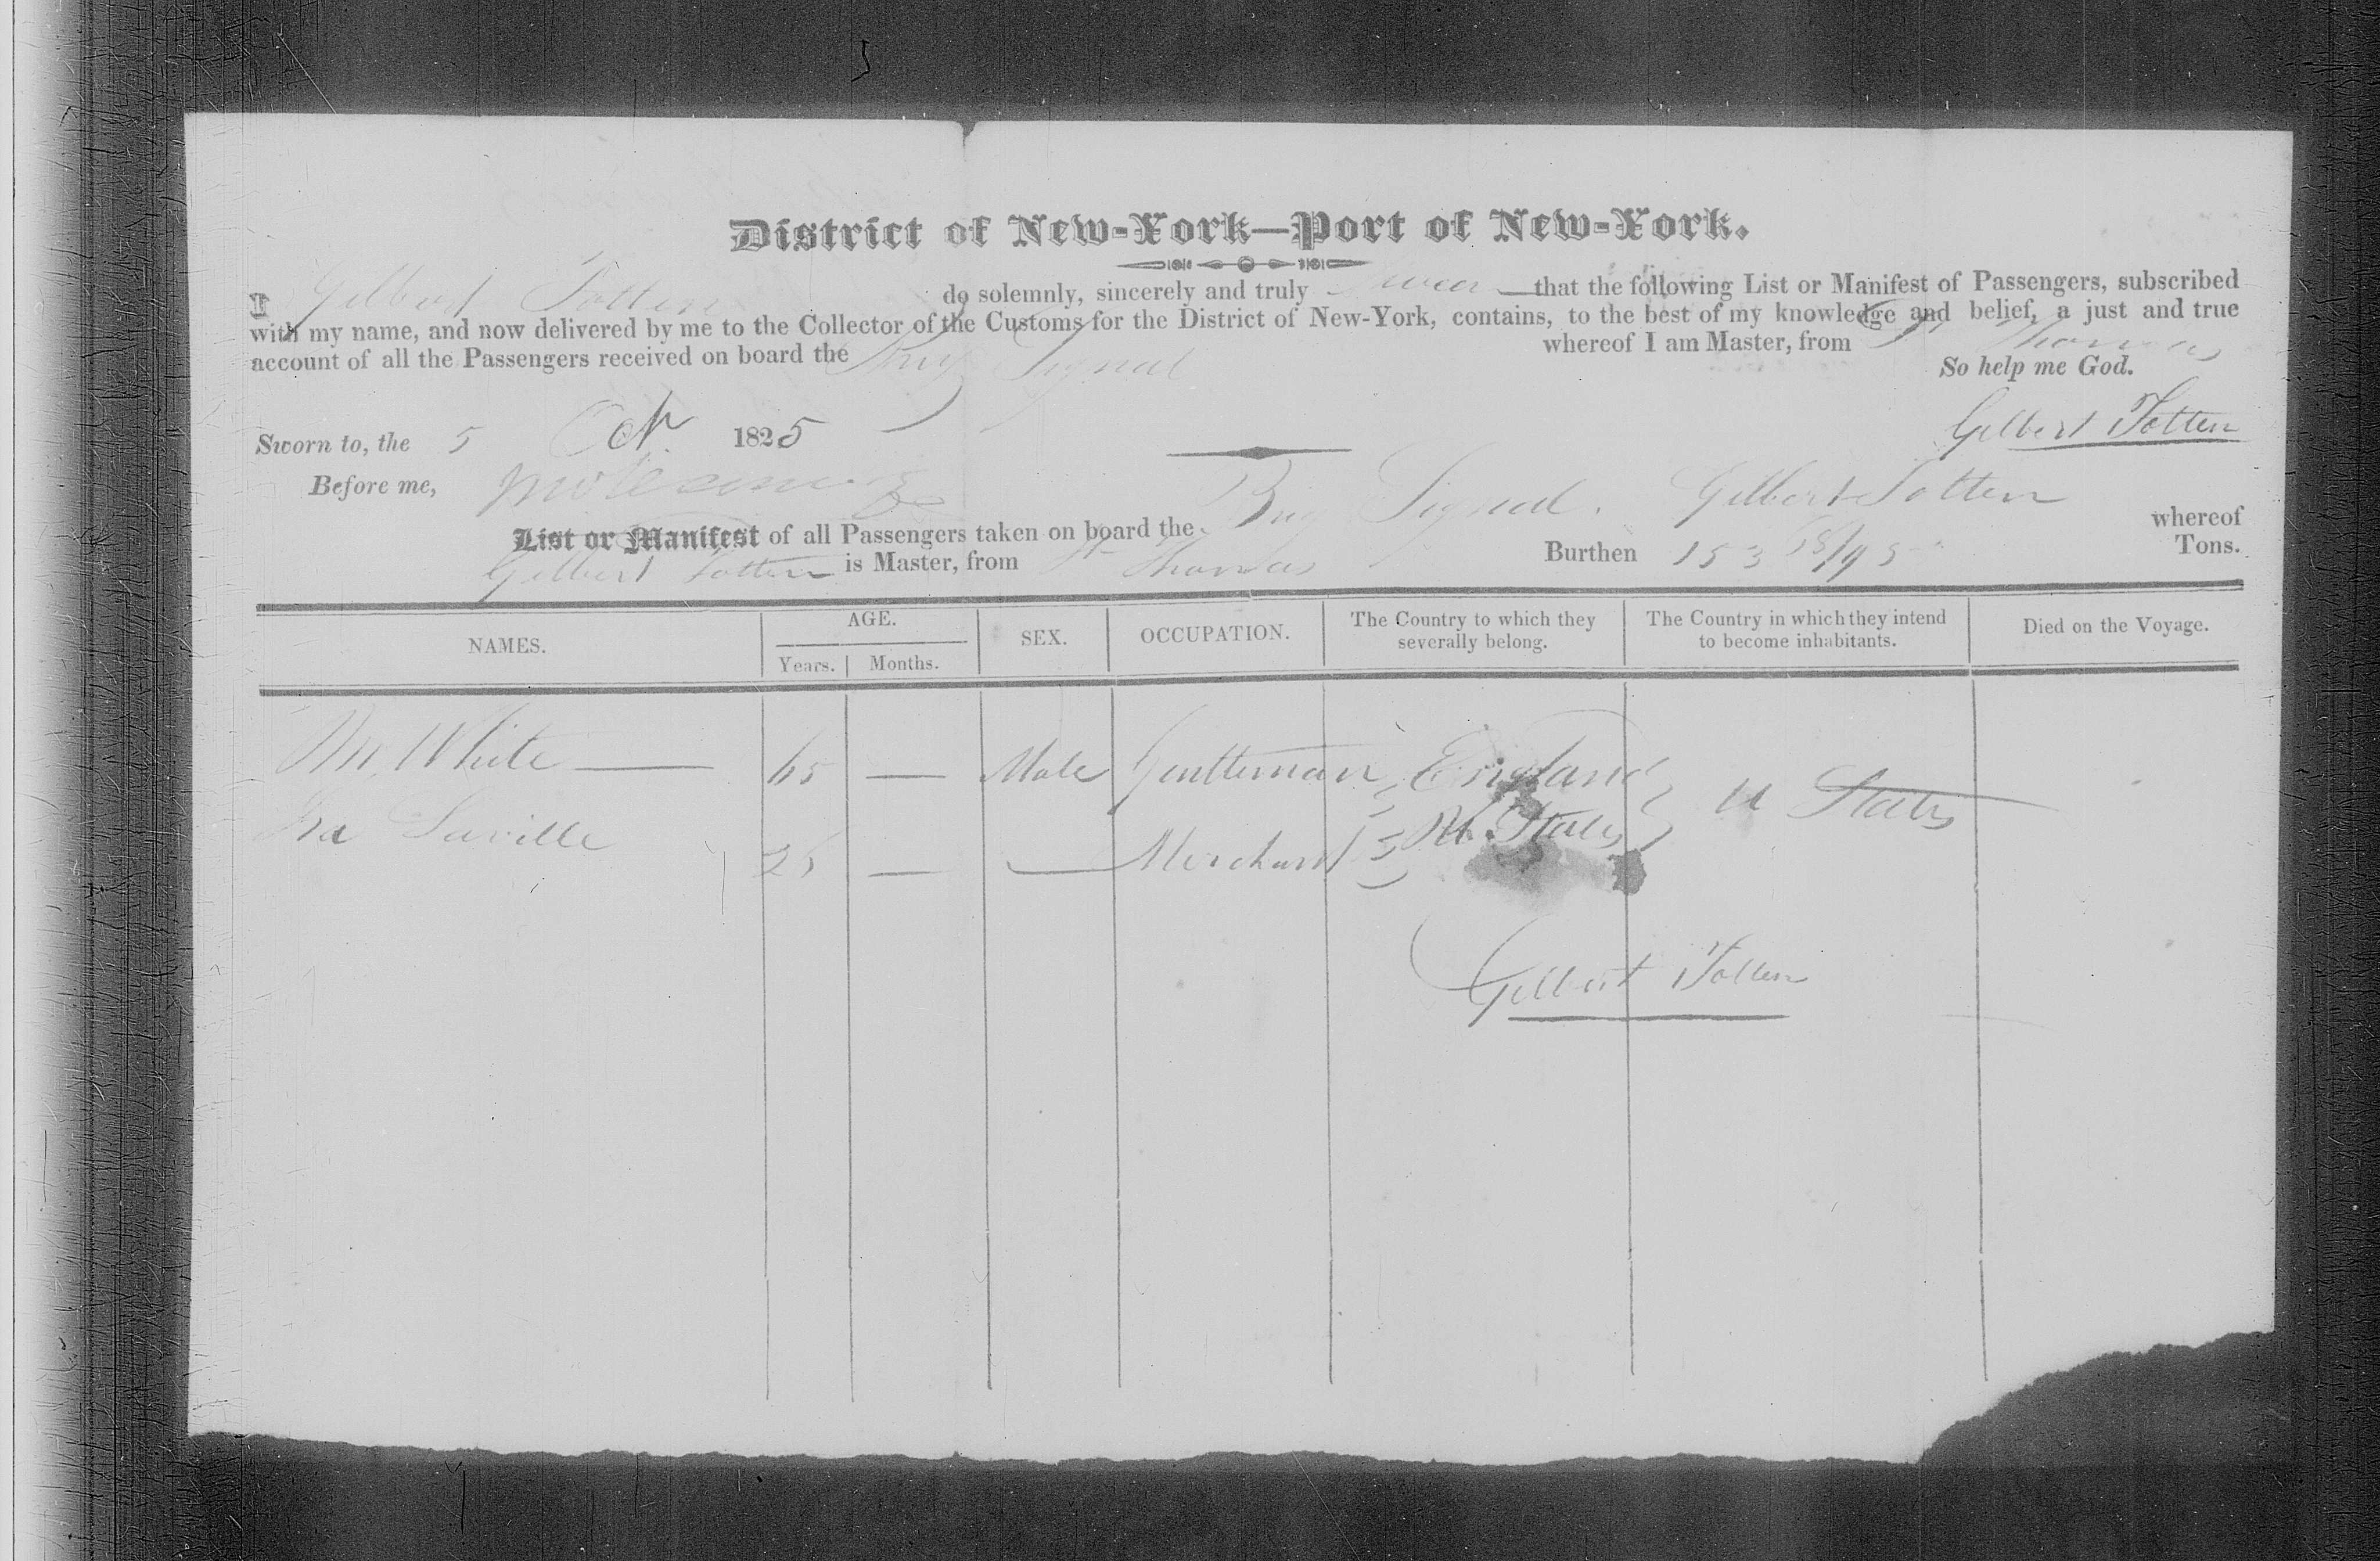 District of New-York—Port of New-York.
I Gilbert Totten do solemnly, sincerely and truly swear that the following List or Manifest of Passengers, subscribed
with my name, and now delivered by me to the Collector of the Customs for the District of New-York, contains, to the best of my knowledge and belief, a just and true
account of all the Passengers received on board the Brig Signal whereof I am Master, from St Thomas
So help me God.
Sworn to, the 5 Oct 1825
Gilbert Totten
Before me,
List or Manifest of all Passengers taken on board the Brig Signal. Gilbert Totten whereof
Gilbert Totten is Master, from St Thomas Burthen 153 /95 Tons.
NAMES. AGE. SEX. OCCUPATION. The Country to which they severally belong. The Country in which they intend to become inhabitants. Died on the Voyage.
Years. Months.
White — 65 — Male Gentleman England
U States
Saville 25 — — Merchant U. States
Gilbert Totten